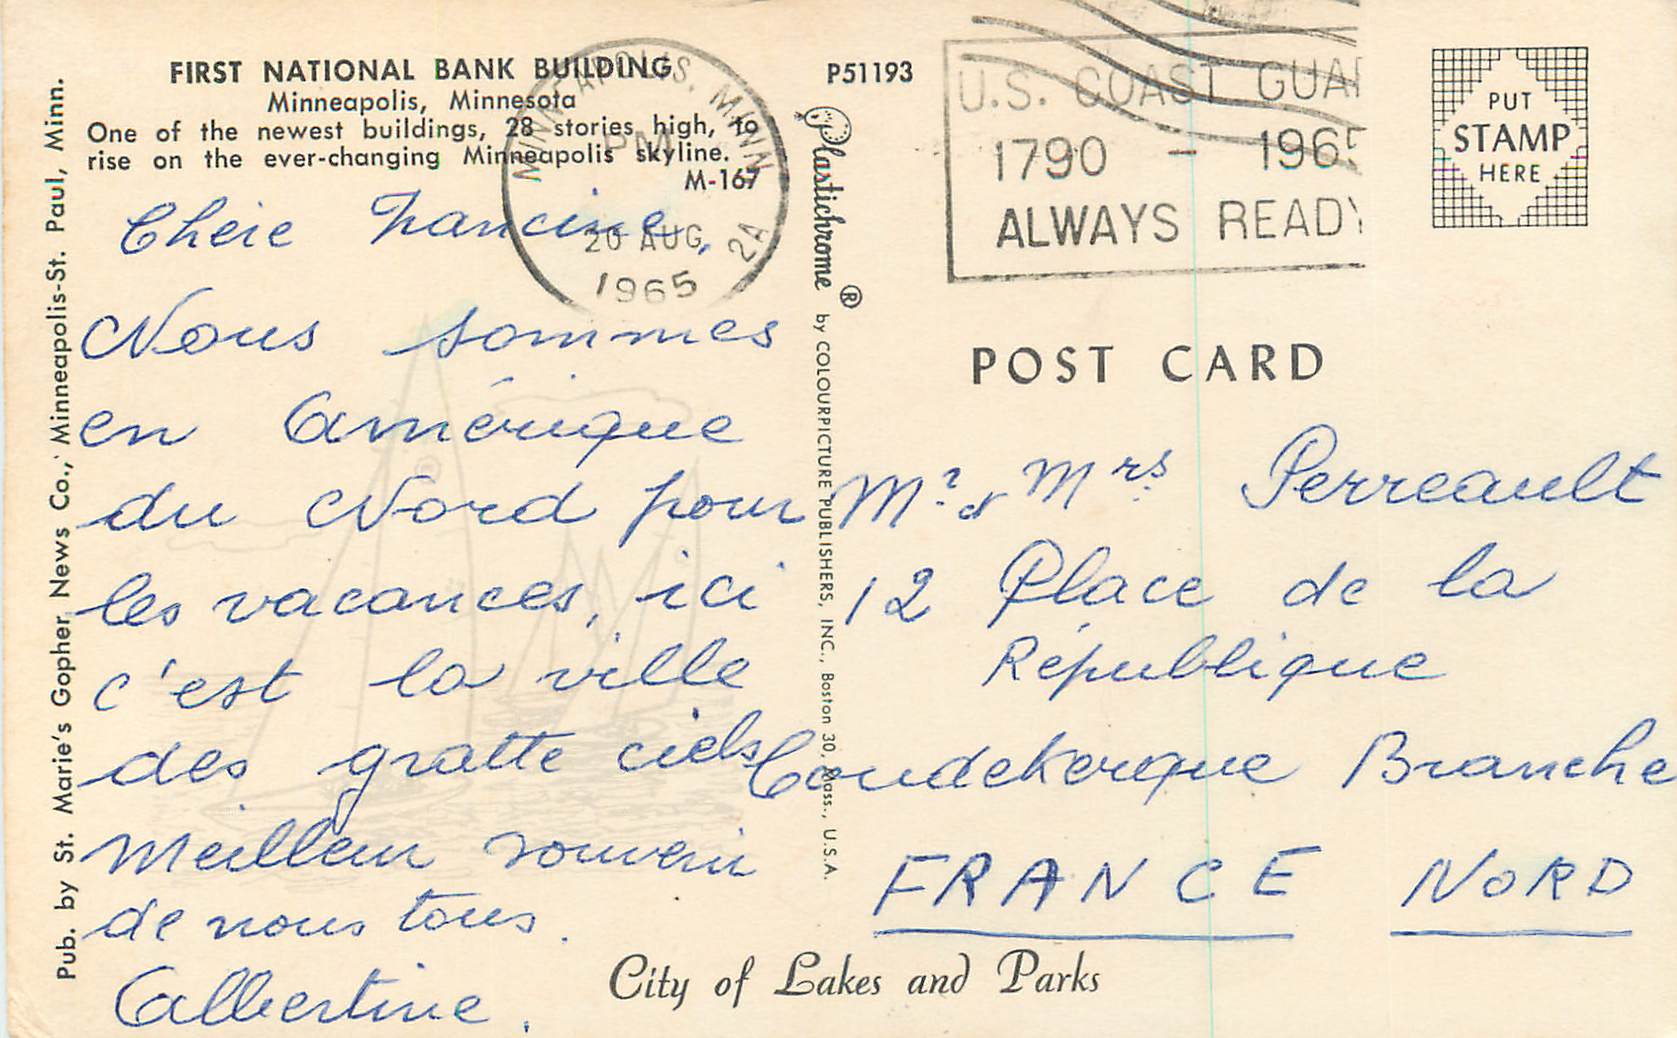 FIRST NATIONAL BANK BUILDING
Minneapolis, Minnesota
One of the newest buildings, 28 stories high, to
rise on the ever-changing Minneapolis skyline.
M-167
Pub. by St. Marie's Gopher News Co., Minneapolis-St. Paul, Minn.
MINNEAPOLIS, MINN
PM
20 AUG
1965
2A
Chere Francine,
Nous sommes
en Amérique
du Nord pour
les vacances, ici
c'est la ville
des gratte ciels
Meilleur souvenir
de nous tous.
Albertine.
P51193
Plastichrome ® by COLOURPICTURE PUBLISHERS, INC., Boston 30, Mass., U.S.A.
U.S. COAST GUAR
1790 - 1965
ALWAYS READY
PUT
STAMP
HERE
POST CARD
Mr & Mrs Perreault
12 Place de la
République
Coudekerque Branche
FRANCE NORD
City of Lakes and Parks